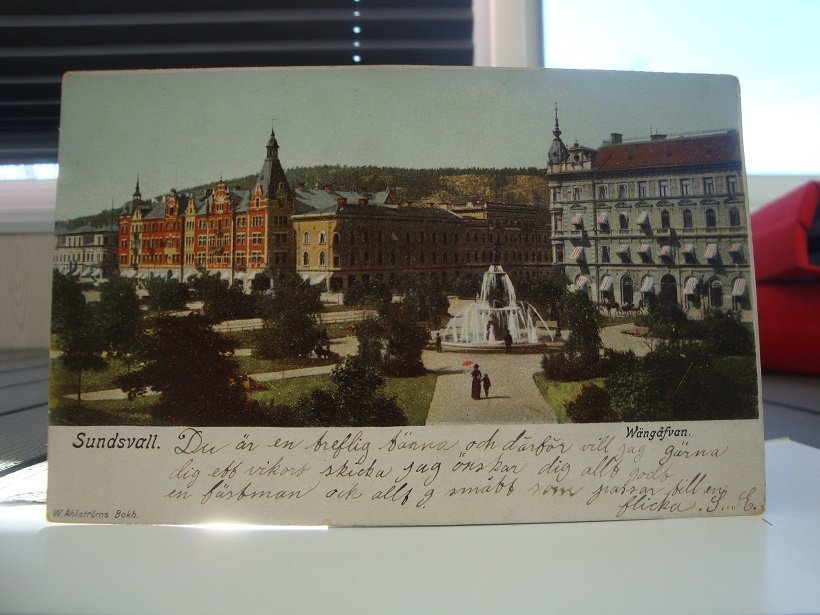 Sundsvall.
Wängåfvan.
Du är en treflig tärna och därför vill jag gärna
dig ett vikort skicka jag önskar dig allt godt
en fästman ock allt g smått som passar till en
flicka. S... E.
W. Ahlströms Bokh.